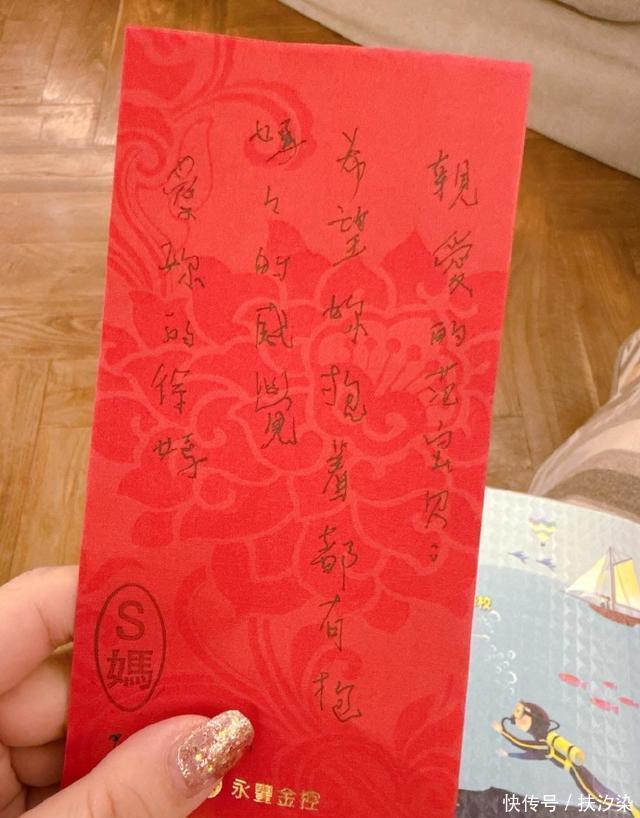 親愛的范宝贝：
希望妳抱着都有抱
媽々的感覺
愛妳的徐媽
S
媽
永豐金控
快传号 / 扶汐染